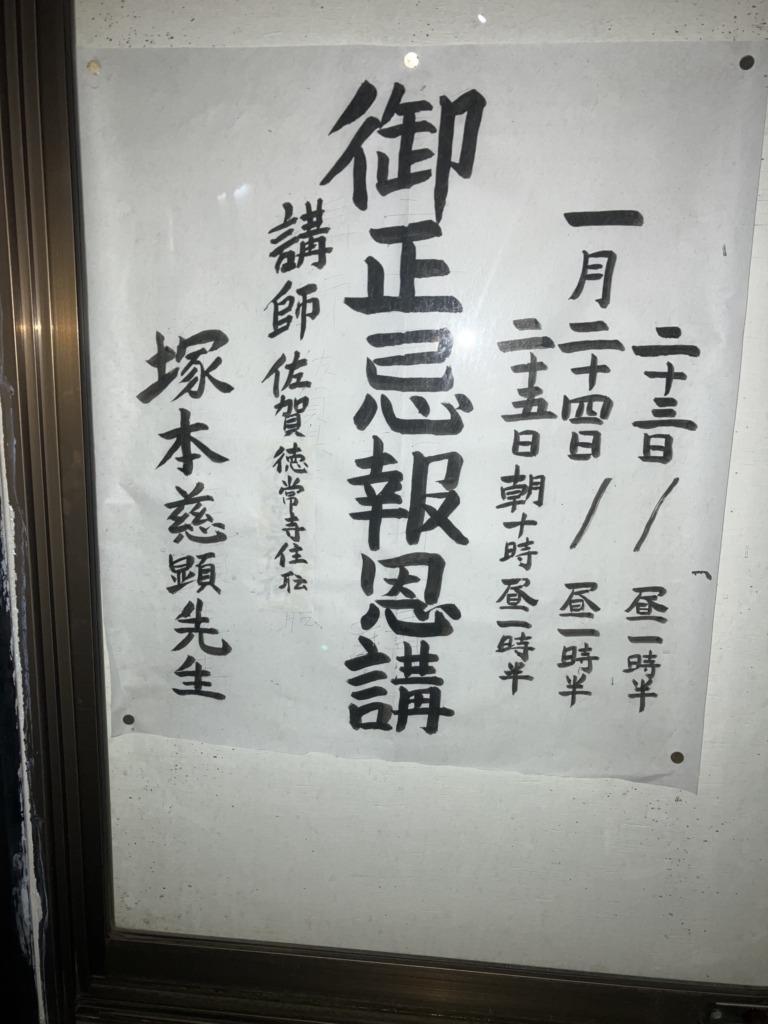 一月
二十三日 / 昼一時半
二十四日 / 昼一時半
二十五日 朝十時 昼一時半
御正忌報恩講
講師 佐賀徳常寺住职
塚本慈顕先生